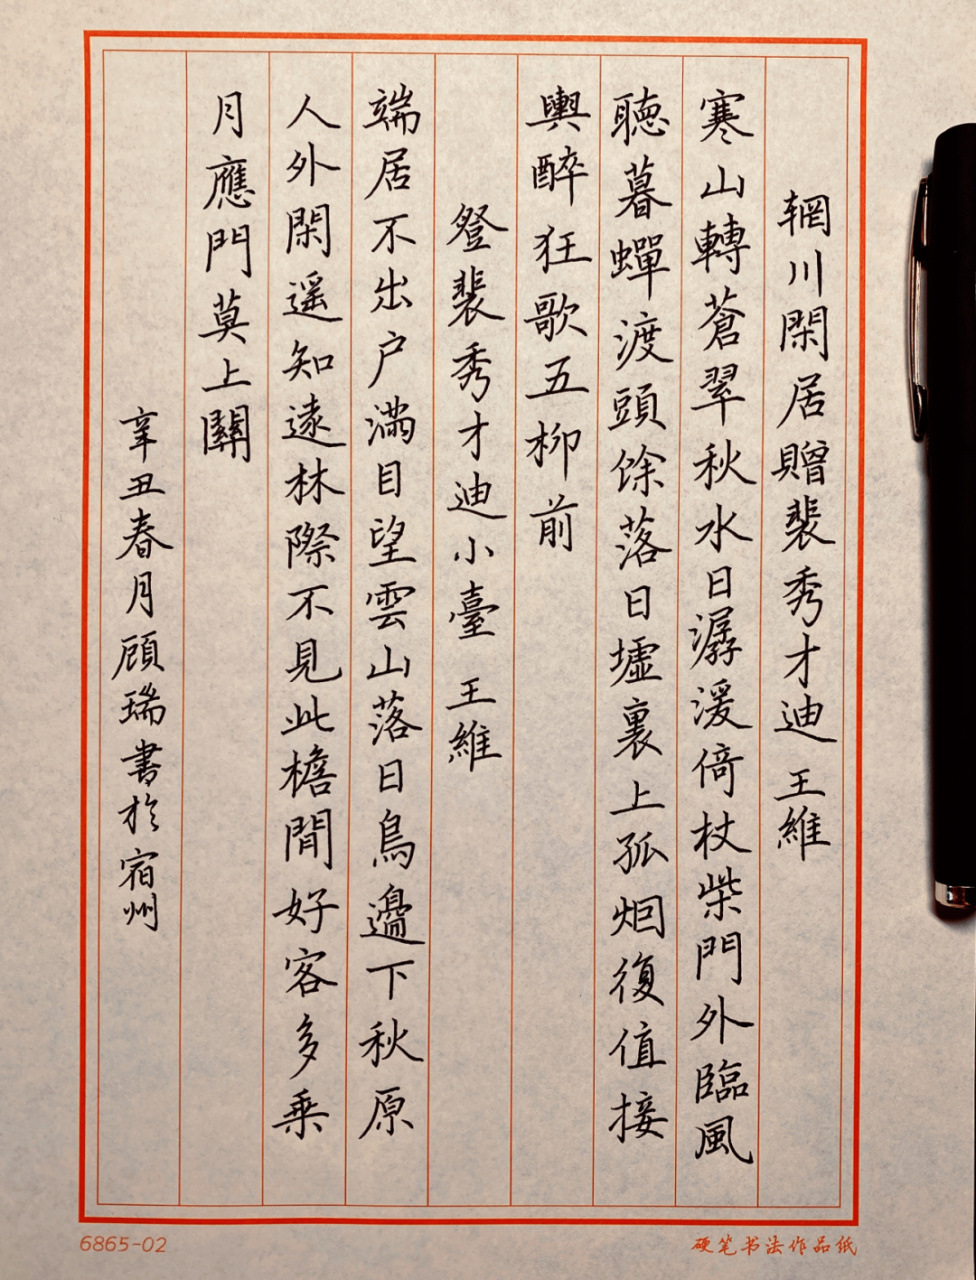 輞川閑居贈裴秀才迪 王維
寒山轉蒼翠秋水日潺湲倚杖柴門外臨風
聽暮蟬渡頭馀落日墟裏上孤烟復值接
輿醉狂歌五柳前
登裴秀才迪小臺 王維
端居不出户滿目望雲山落日鳥邊下秋原
人外閑遥知遠林際不見此檐間好客多乘
月應門莫上關
辛丑春月顧瑞書於宿州
6865-02
硬笔书法作品纸